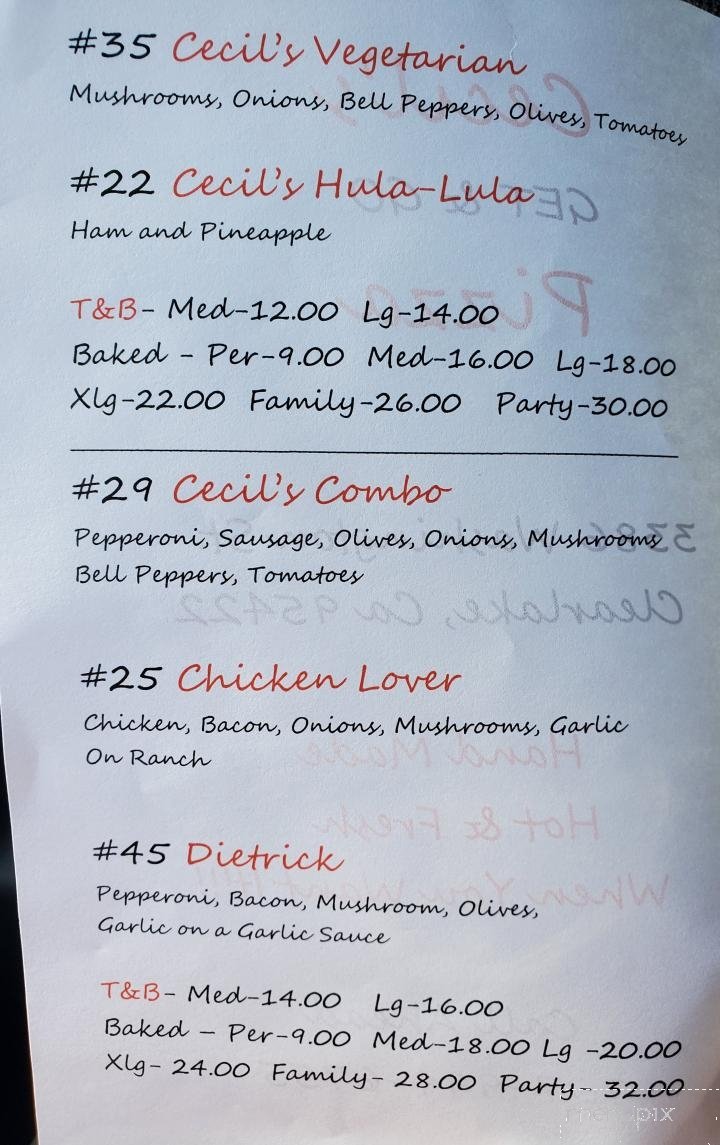 #35 Cecil's Vegetarian
Mushrooms, Onions, Bell Peppers, Olives, Tomatoes
#22 Cecil's Hula-Lula
Ham and Pineapple
T&B- Med-12.00 Lg-14.00
Baked - Per-9.00 Med-16.00 Lg-18.00
Xlg-22.00 Family-26.00 Party-30.00
#29 Cecil's Combo
Pepperoni, Sausage, Olives, Onions, Mushrooms
Bell Peppers, Tomatoes
#25 Chicken Lover
Chicken, Bacon, Onions, Mushrooms, Garlic
On Ranch
#45 Dietrick
Pepperoni, Bacon, Mushroom, Olives,
Garlic on a Garlic Sauce
T&B- Med-14.00 Lg-16.00
Baked - Per-9.00 Med-18.00 Lg -20.00
Xlg- 24.00 Family- 28.00 Party- 32.00
menupix